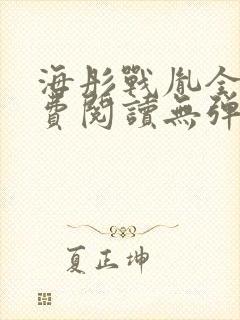 海彤戰胤全
費閱讀無彈
夏正坤